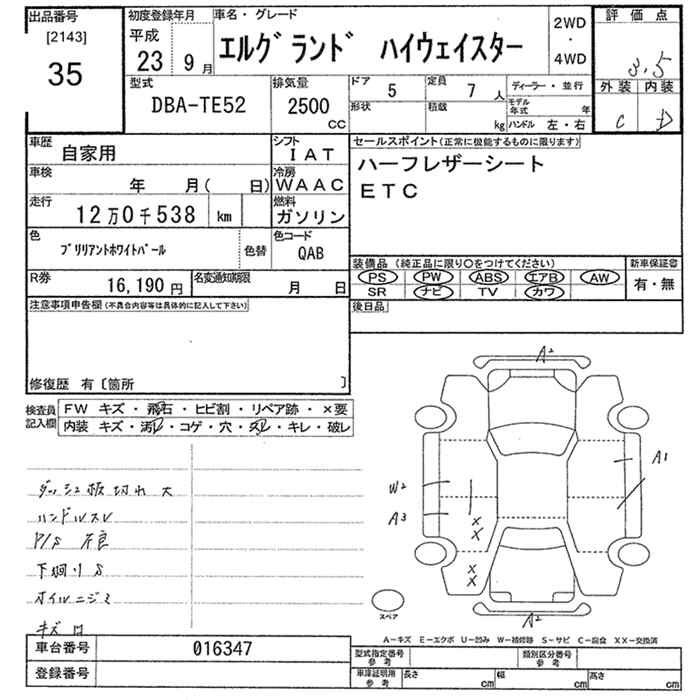 出品番号
[2143]
35
初度登録年月
平成
23 9月
車名・グレード
エルグランド ハイウェイスター
2WD
・
4WD
評価点
3.5
外装 内装
C D
型式
DBA-TE52
排気量
2500
CC
ドア
5
定員
7人
形状
積載
kg
ディーラー・並行
モデル年式 年
ハンドル 左・右
車歴
自家用
シフト
IAT
車検
年 月( 日)
冷房
WAAC
走行
12万0千538 km
燃料
ガソリン
色
ブリリアントホワイトパール
色替
色コード
QAB
R券
16,190円
名変通知期限
月 日
セールスポイント(正常に機能するものに限ります)
ハーフレザーシート
ETC
装備品(純正品に限り○をつけてください)
PS PW ABS エアB AW
SR ナビ TV カワ
新車保証書
有・無
後日品
注意事項申告欄(不具合内容等は具体的に記入して下さい)
修復歴 有〔箇所 〕
検査員記入欄
FW キズ・飛石・ヒビ割・リペア跡・×要
内装 キズ・汚れ・コゲ・穴・スレ・キレ・破レ
ダッシュ板切れ大
ハンドルスレ
P/S不良
下廻りS
オイルニジミ
A2
A1
W2
A3
X
X
X
X
A2
スペア
A-キズ E-エクボ U-凹み W-補修跡 S-サビ C-腐食 XX-交換済
車台番号
016347
登録番号
型式指定番号
参考
類別区分番号
参考
車庫証明用
参考
長さ cm
幅 cm
高さ cm